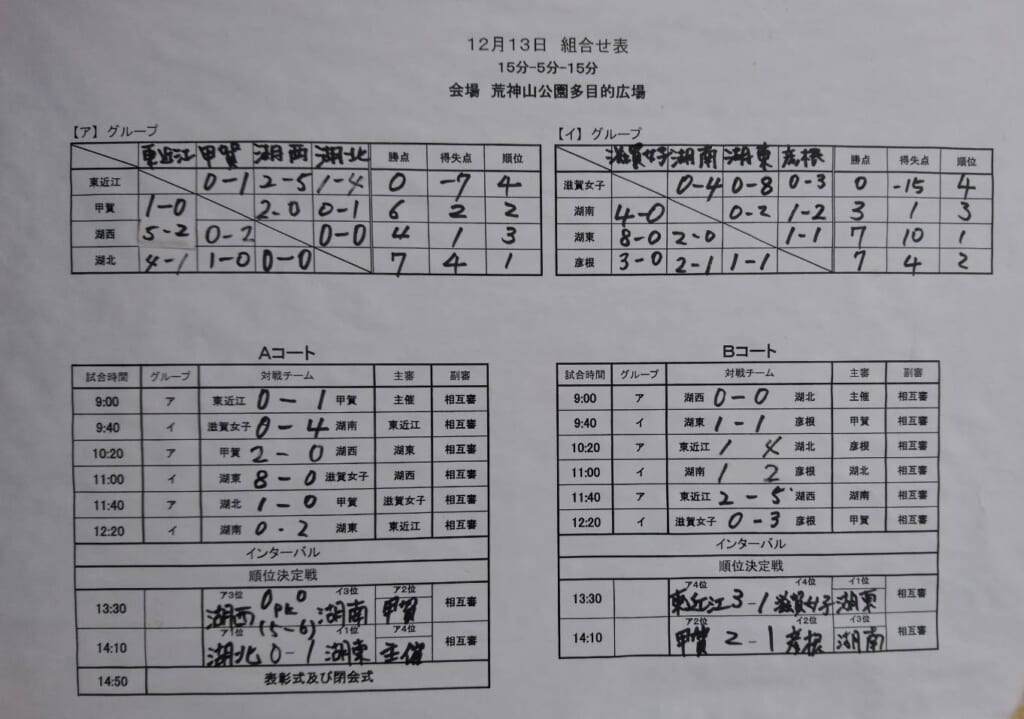 12月13日 組合せ表
15分-5分-15分
会場 荒神山公園多目的広場
【ア】グループ
東近江 甲賀 湖西 湖北 勝点 得失点 順位
東近江 0-1 2-5 1-4 0 -7 4
甲賀 1-0 2-0 0-1 6 2 2
湖西 5-2 0-2 0-0 4 1 3
湖北 4-1 1-0 0-0 7 4 1
【イ】グループ
滋賀女子 湖南 湖東 彦根 勝点 得失点 順位
滋賀女子 0-4 0-8 0-3 0 -15 4
湖南 4-0 0-2 1-2 3 1 3
湖東 8-0 2-0 1-1 7 10 1
彦根 3-0 2-1 1-1 7 4 2
Aコート
試合時間 グループ 対戦チーム 主審 副審
9:00 ア 東近江 0-1 甲賀 主催 相互審
9:40 イ 滋賀女子 0-4 湖南 東近江 相互審
10:20 ア 甲賀 2-0 湖西 湖東 相互審
11:00 イ 湖東 8-0 滋賀女子 湖西 相互審
11:40 ア 湖北 1-0 甲賀 滋賀女子 相互審
12:20 イ 湖南 0-2 湖東 東近江 相互審
インターバル
順位決定戦
ア3位 イ3位 ア2位
13:30 湖西 0 PK 0 湖南 甲賀 相互審
(5-6)
ア1位 イ1位 ア4位
14:10 湖北 0-1 湖東 主催 相互審
14:50 表彰式及び閉会式
Bコート
試合時間 グループ 対戦チーム 主審 副審
9:00 ア 湖西 0-0 湖北 主催 相互審
9:40 イ 湖東 1-1 彦根 甲賀 相互審
10:20 ア 東近江 1 4 湖北 彦根 相互審
11:00 イ 湖南 1 2 彦根 湖北 相互審
11:40 ア 東近江 2-5 湖西 湖南 相互審
12:20 イ 滋賀女子 0-3 彦根 甲賀 相互審
インターバル
順位決定戦
ア4位 イ4位 イ1位
13:30 東近江 3-1 滋賀女子 湖東 相互審
ア2位 イ2位 イ3位
14:10 甲賀 2-1 彦根 湖南 相互審